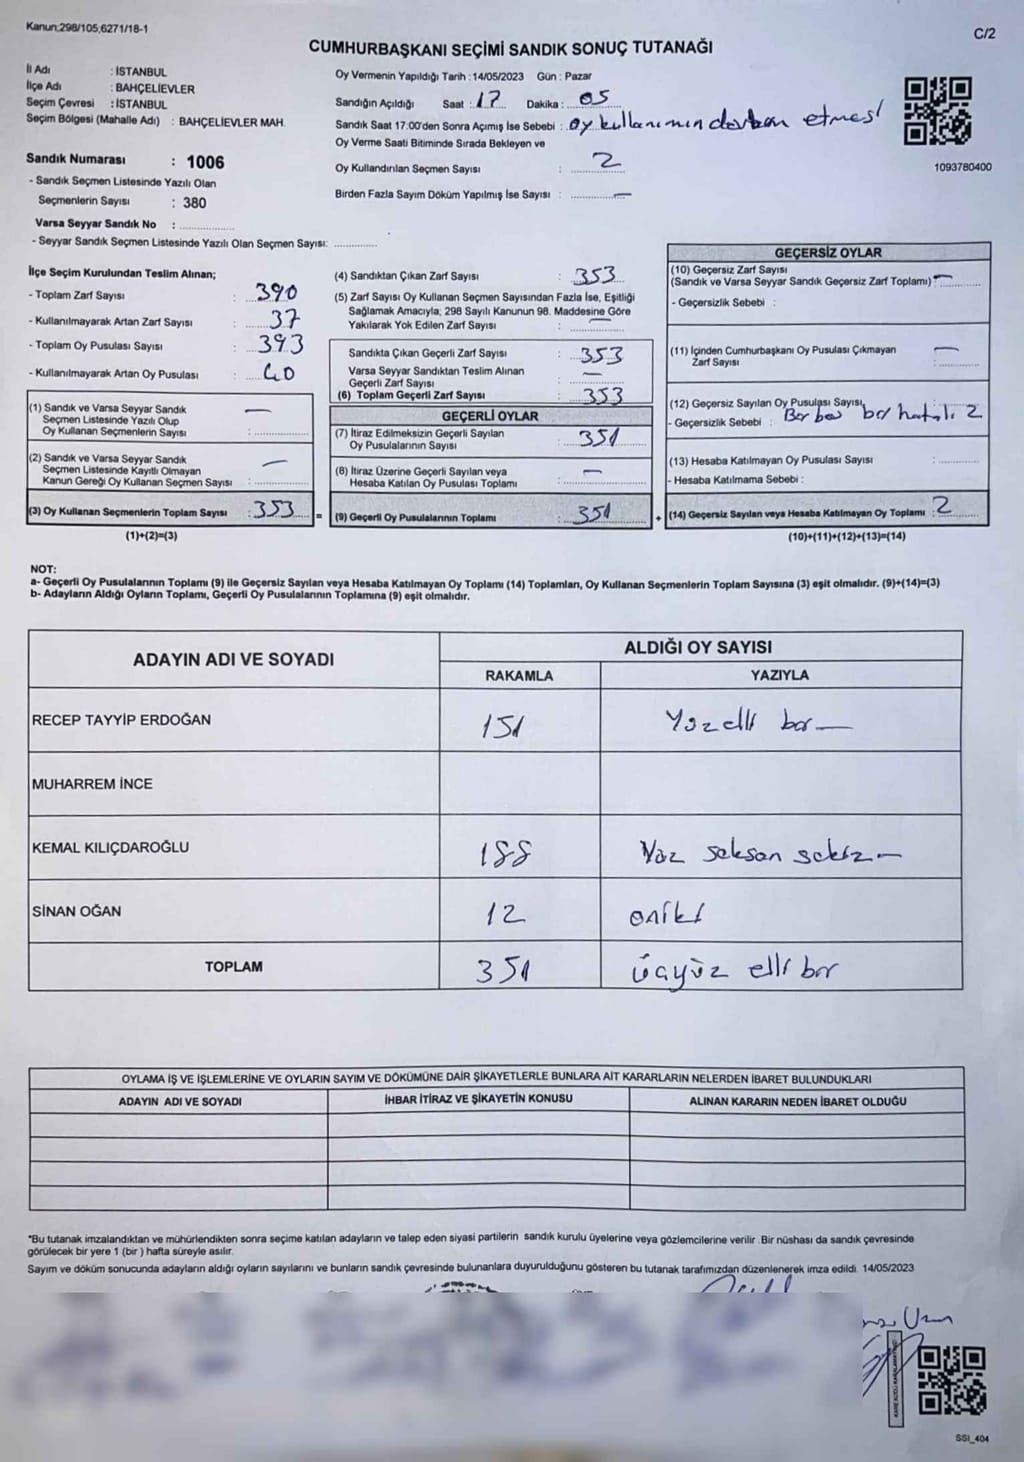 Kanun;298/105,6271/18-1
C/2
CUMHURBAŞKANI SEÇİMİ SANDIK SONUÇ TUTANAĞI
İl Adı : İSTANBUL
İlçe Adı : BAHÇELİEVLER
Seçim Çevresi : İSTANBUL
Seçim Bölgesi (Mahalle Adı) : BAHÇELİEVLER MAH.
Sandık Numarası : 1006
- Sandık Seçmen Listesinde Yazılı Olan
Seçmenlerin Sayısı : 380
Varsa Seyyar Sandık No :
- Seyyar Sandık Seçmen Listesinde Yazılı Olan Seçmen Sayısı:
Oy Vermenin Yapıldığı Tarih : 14/05/2023 Gün : Pazar
Sandığın Açıldığı Saat : 17 Dakika : 05
Sandık Saat 17:00'den Sonra Açımış İse Sebebi : oy kullanımının devam etmesi
Oy Verme Saati Bitiminde Sırada Bekleyen ve
Oy Kullandırılan Seçmen Sayısı : 2
Birden Fazla Sayım Döküm Yapılmış İse Sayısı : —
1093780400
İlçe Seçim Kurulundan Teslim Alınan;
- Toplam Zarf Sayısı : 390
- Kullanılmayarak Artan Zarf Sayısı : 37
- Toplam Oy Pusulası Sayısı : 393
- Kullanılmayarak Artan Oy Pusulası : 40
(1) Sandık ve Varsa Seyyar Sandık
Seçmen Listesinde Yazılı Olup
Oy Kullanan Seçmenlerin Sayısı : —
(2) Sandık ve Varsa Seyyar Sandık
Seçmen Listesinde Kayıtlı Olmayan
Kanun Gereği Oy Kullanan Seçmen Sayısı : —
(3) Oy Kullanan Seçmenlerin Toplam Sayısı : 353 =
(1)+(2)=(3)
(4) Sandıktan Çıkan Zarf Sayısı : 353
(5) Zarf Sayısı Oy Kullanan Seçmen Sayısından Fazla İse, Eşitliği
Sağlamak Amacıyla; 298 Sayılı Kanunun 98. Maddesine Göre
Yakılarak Yok Edilen Zarf Sayısı : —
Sandıkta Çıkan Geçerli Zarf Sayısı : 353
Varsa Seyyar Sandıktan Teslim Alınan
Geçerli Zarf Sayısı : —
(6) Toplam Geçerli Zarf Sayısı : 353
GEÇERLİ OYLAR
(7) İtiraz Edilmeksizin Geçerli Sayılan
Oy Pusulalarının Sayısı : 351
(8) İtiraz Üzerine Geçerli Sayılan veya
Hesaba Katılan Oy Pusulası Toplamı : —
(9) Geçerli Oy Pusulalarının Toplamı : 351 +
GEÇERSİZ OYLAR
(10) Geçersiz Zarf Sayısı
(Sandık ve Varsa Seyyar Sandık Geçersiz Zarf Toplamı) : —
- Geçersizlik Sebebi :
(11) İçinden Cumhurbaşkanı Oy Pusulası Çıkmayan
Zarf Sayısı : —
(12) Geçersiz Sayılan Oy Pusulası Sayısı
- Geçersizlik Sebebi : Bir boş bir hatalı 2
(13) Hesaba Katılmayan Oy Pusulası Sayısı :
- Hesaba Katılmama Sebebi :
(14) Geçersiz Sayılan veya Hesaba Katılmayan Oy Toplamı : 2
(10)+(11)+(12)+(13)=(14)
NOT:
a- Geçerli Oy Pusulalarının Toplamı (9) ile Geçersiz Sayılan veya Hesaba Katılmayan Oy Toplamı (14) Toplamları, Oy Kullanan Seçmenlerin Toplam Sayısına (3) eşit olmalıdır. (9)+(14)=(3)
b- Adayların Aldığı Oyların Toplamı, Geçerli Oy Pusulalarının Toplamına (9) eşit olmalıdır.
ADAYIN ADI VE SOYADI
ALDIĞI OY SAYISI
RAKAMLA YAZIYLA
RECEP TAYYİP ERDOĞAN 151 Yüzelli bir —
MUHARREM İNCE
KEMAL KILIÇDAROĞLU 188 Yüz seksan sekiz —
SİNAN OĞAN 12 oniki
TOPLAM 351 üçyüz elli bir
OYLAMA İŞ VE İŞLEMLERİNE VE OYLARIN SAYIM VE DÖKÜMÜNE DAİR ŞİKAYETLERLE BUNLARA AİT KARARLARIN NELERDEN İBARET BULUNDUKLARI
ADAYIN ADI VE SOYADI İHBAR İTİRAZ VE ŞİKAYETİN KONUSU ALINAN KARARIN NEDEN İBARET OLDUĞU
*Bu tutanak imzalandıktan ve mühürlendikten sonra seçime katılan adayların ve talep eden siyasi partilerin sandık kurulu üyelerine veya gözlemcilerine verilir .Bir nüshası da sandık çevresinde
görülecek bir yere 1 (bir ) hafta süreyle asılır.
Sayım ve döküm sonucunda adayların aldığı oyların sayılarını ve bunların sandık çevresinde bulunanlara duyurulduğunu gösteren bu tutanak tarafımızdan düzenlenerek imza edildi. 14/05/2023
SSI_404